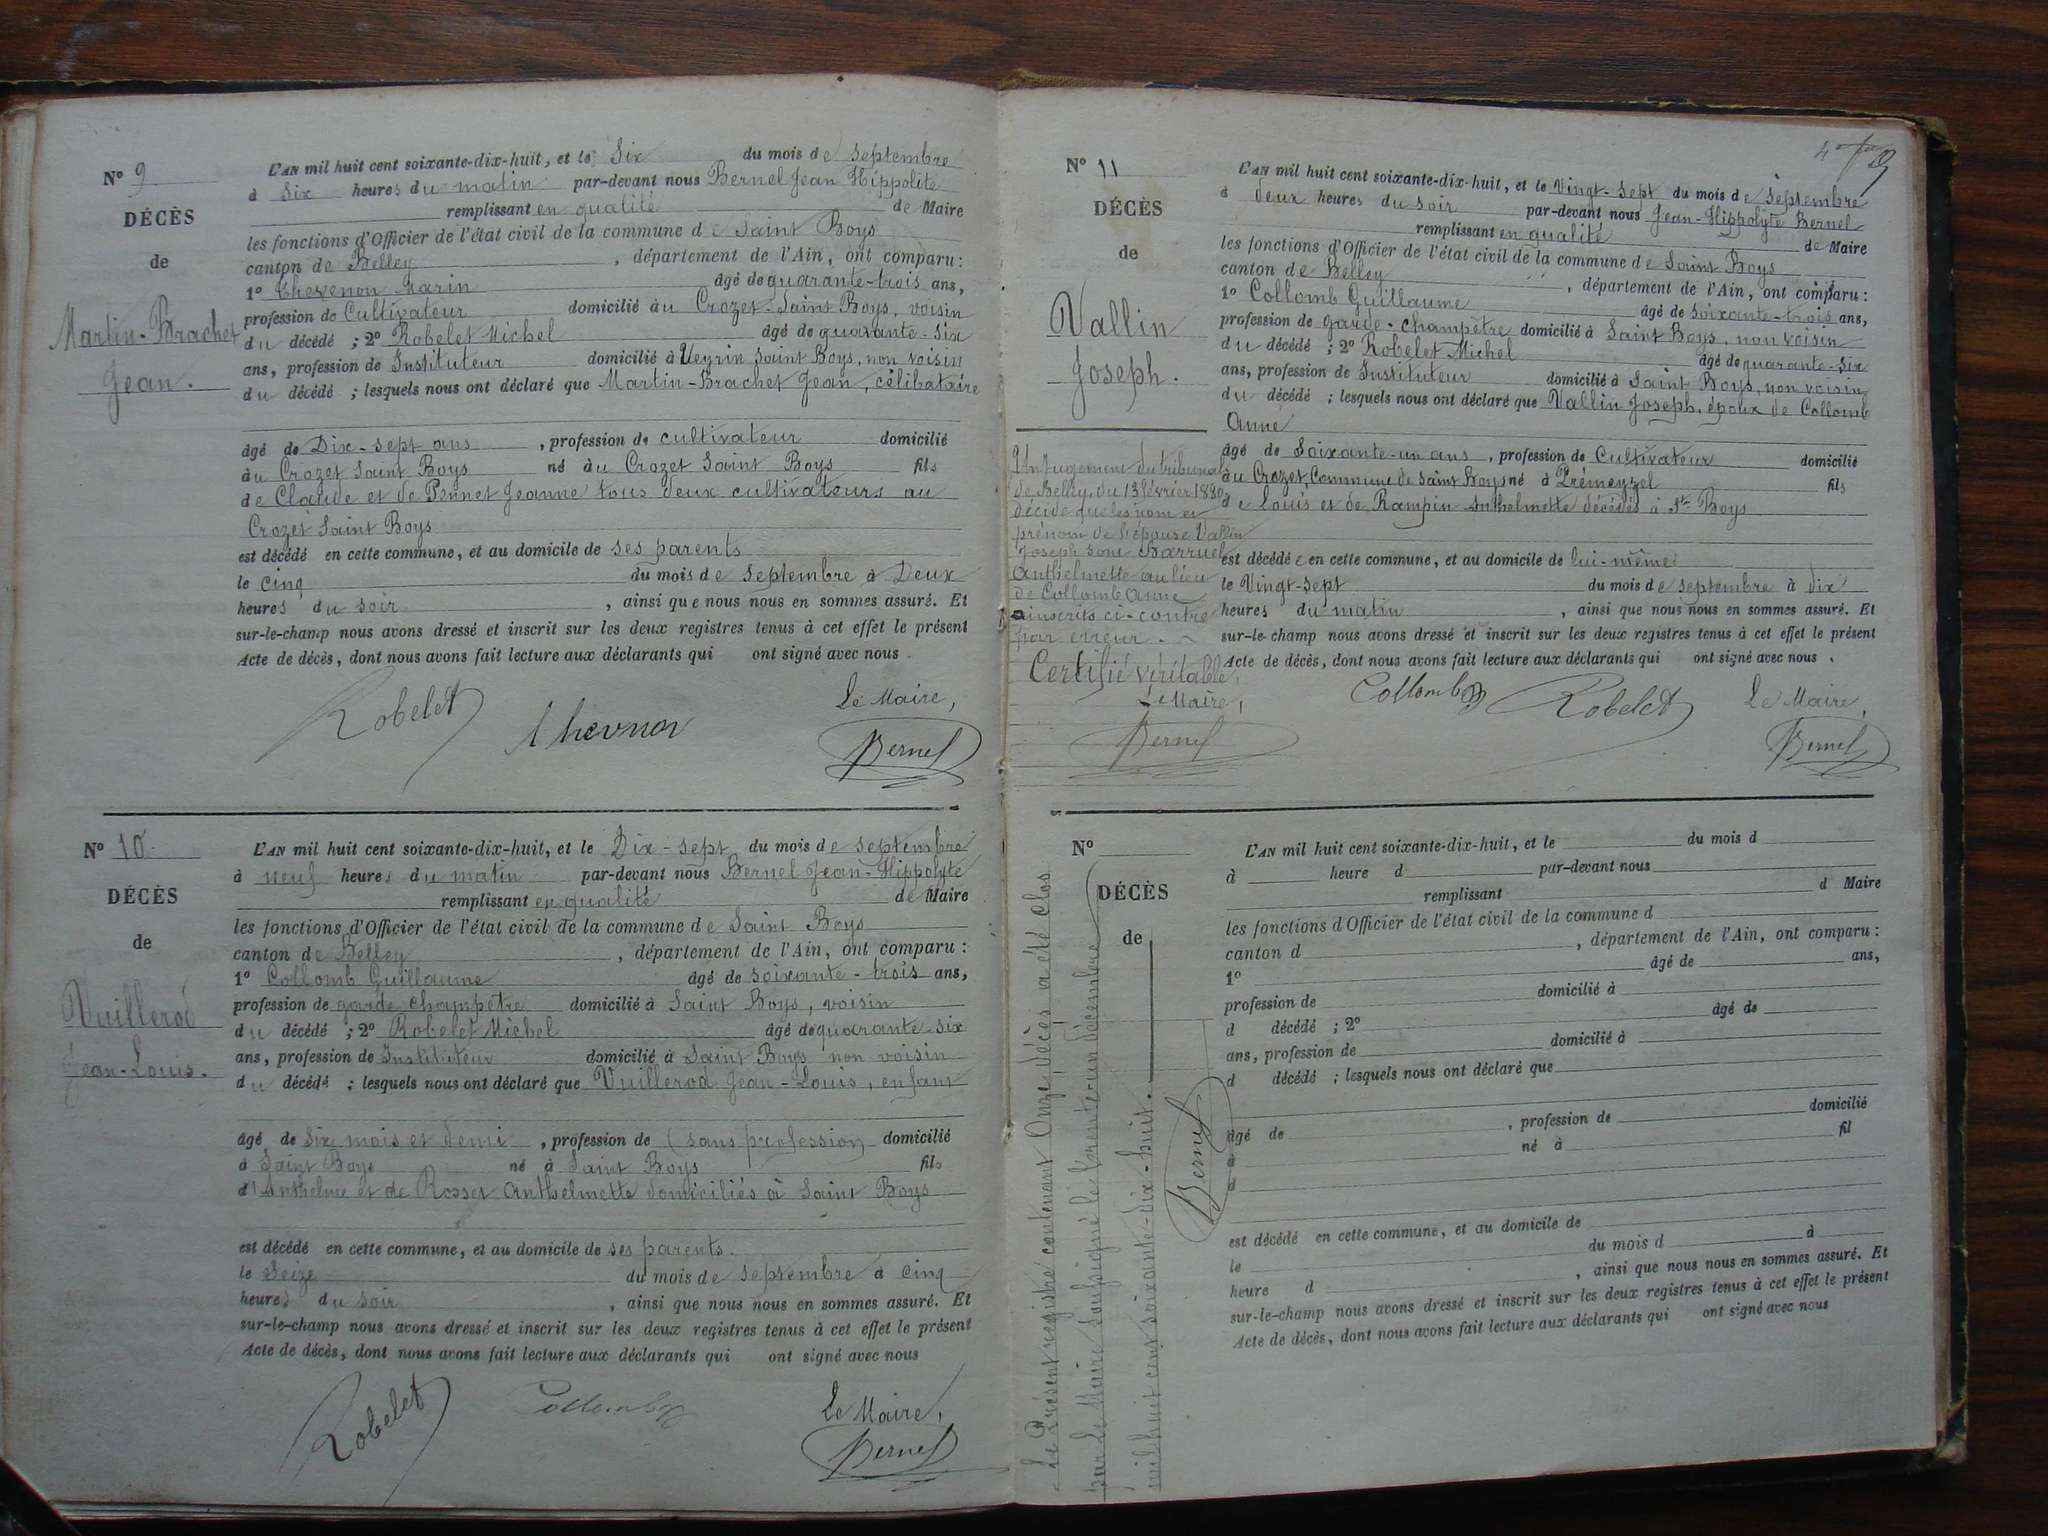 N° 9
DÉCÈS
de
Martin-Brachet
Jean.
L'AN mil huit cent soixante-dix-huit, et le Six du mois de septembre
à Six heures du matin par-devant nous Bernel Jean Hippolite
remplissant en qualité de Maire
les fonctions d'Officier de l'état civil de la commune de Saint Boys
canton de Belley, département de l'Ain, ont comparu:
1° Chevenon Marin âgé de quarante-trois ans,
profession de Cultivateur domicilié au Crozet-Saint Boys, voisin
du décédé ; 2° Robelet Michel âgé de quarante-six
ans, profession de Instituteur domicilié à Veyrin Saint Boys, non voisin
du décédé ; lesquels nous ont déclaré que Martin-Brachet Jean, célibataire
âgé de Dix-sept ans, profession de cultivateur domicilié
au Crozet Saint Boys né au Crozet Saint Boys fils
de Claude et de Pennet Jeanne tous deux cultivateurs au
Crozet Saint Boys
est décédé en cette commune, et au domicile de ses parents
le cinq du mois de septembre à Deux
heures du soir, ainsi que nous nous en sommes assuré. Et
sur-le-champ nous avons dressé et inscrit sur les deux registres tenus à cet effet le présent
Acte de décès, dont nous avons fait lecture aux déclarants qui ont signé avec nous.
Le Maire,
Robelet Chevnon Bernel
N° 10
DÉCÈS
de
Vuillerod
Jean-Louis.
L'AN mil huit cent soixante-dix-huit, et le Dix-sept du mois de septembre
à neuf heures du matin par-devant nous Bernel Jean-Hippolyte
remplissant en qualité de Maire
les fonctions d'Officier de l'état civil de la commune de Saint Boys
canton de Belley, département de l'Ain, ont comparu :
1° Collomb Guillaume âgé de soixante-trois ans,
profession de garde champêtre domicilié à Saint Boys, voisin
du décédé ; 2° Robelet Michel âgé de quarante-six
ans, profession de Instituteur domicilié à Saint Boys non voisin
du décédé ; lesquels nous ont déclaré que Vuillerod Jean-Louis, enfant
âgé de six mois et demi, profession de (sans profession) domicilié
à Saint Boys né à Saint Boys fils
d'Anthelme et de Rosset Anthelmette domiciliés à Saint Boys
est décédé en cette commune, et au domicile de ses parents.
le Seize du mois de septembre à cinq
heures du soir, ainsi que nous nous en sommes assuré. Et
sur-le-champ nous avons dressé et inscrit sur les deux registres tenus à cet effet le présent
Acte de décès, dont nous avons fait lecture aux déclarants qui ont signé avec nous
Robelet Collomb Le Maire,
Bernel
N° 11
DÉCÈS
de
Vallin
Joseph.
Un jugement du tribunal
de Belley, du 13 février 1880
décide que les nom et
prénom de l'épouse Vallin
Joseph sont Barruel
Anthelmette au lieu
de Collomb Anne
inscrits ci-contre
par erreur.
Certifié véritable,
Le Maire,
Bernel
L'AN mil huit cent soixante-dix-huit, et le Vingt-sept du mois de septembre
à deux heures du soir par-devant nous Jean-Hippolyte Bernel
remplissant en qualité de Maire
les fonctions d'Officier de l'état civil de la commune de Saint Boys
canton de Belley, département de l'Ain, ont comparu :
1° Collomb Guillaume âgé de soixante-trois ans,
profession de garde-champêtre domicilié à Saint Boys, non voisin
du décédé ; 2° Robelet Michel âgé de quarante-six
ans, profession de Instituteur domicilié à Saint Boys, non voisin
du décédé ; lesquels nous ont déclaré que Vallin Joseph, époux de Collomb
Anne
âgé de Soixante-un ans, profession de Cultivateur domicilié
au Crozet, Commune de Saint Boys né à Prémeyzel fils
de Louis et de Rampin Anthelmette décédés à St Boys
est décédé en cette commune, et au domicile de lui-même
le Vingt-sept du mois de septembre à dix
heures du matin, ainsi que nous nous en sommes assuré. Et
sur-le-champ nous avons dressé et inscrit sur les deux registres tenus à cet effet le présent
Acte de décès, dont nous avons fait lecture aux déclarants qui ont signé avec nous.
Collomb Robelet Le Maire,
Bernel
N°
DÉCÈS
de
Le Présent registre contenant Onze décès a été clos
par le Maire soussigné le trente-un décembre
mil huit cent soixante-dix-huit.
Bernel
L'AN mil huit cent soixante-dix-huit, et le du mois d
à heure d par-devant nous
remplissant d Maire
les fonctions d'Officier de l'état civil de la commune d
canton d, département de l'Ain, ont comparu :
1° âgé de ans,
profession de domicilié à
d décédé ; 2° âgé de
ans, profession de domicilié à
d décédé ; lesquels nous ont déclaré que
âgé de, profession de domicilié
à né à fil
d
est décédé en cette commune, et au domicile de
le du mois d à
heure d, ainsi que nous nous en sommes assuré. Et
sur-le-champ nous avons dressé et inscrit sur les deux registres tenus à cet effet le présent
Acte de décès, dont nous avons fait lecture aux déclarants qui ont signé avec nous